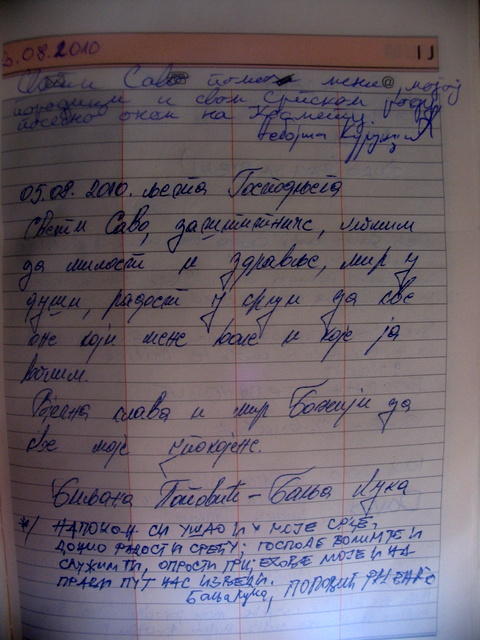 5.08.2010
Свети Сава помози мени, мојој
породици и свом Српском роду
посебно оном на
05.08.2010. љета Господњега
Свети Саво, заштитниче, молим
да милост и здравље, мир у
души, радост у срцу да све
оне који мене воле и које ја
волим.
Вјечна слава и мир Божији да
све моје упокојене.
Биљана Поповић - Бања Лука
*/ НАПОКОН СИ УШАО И У МОЈЕ СРЦЕ,
ДОНИО РАДОСТ И СРЕЋУ; ГОСПОДЕ ВОЛИМ ТЕ И
СЛУЖИМ ТИ, ОПРОСТИ ГРИЈЕХОВЕ МОЈЕ И НА
ПРАВИ ПУТ НАС ИЗВЕДИ.
Бања Лука, ПОРОДИЦА